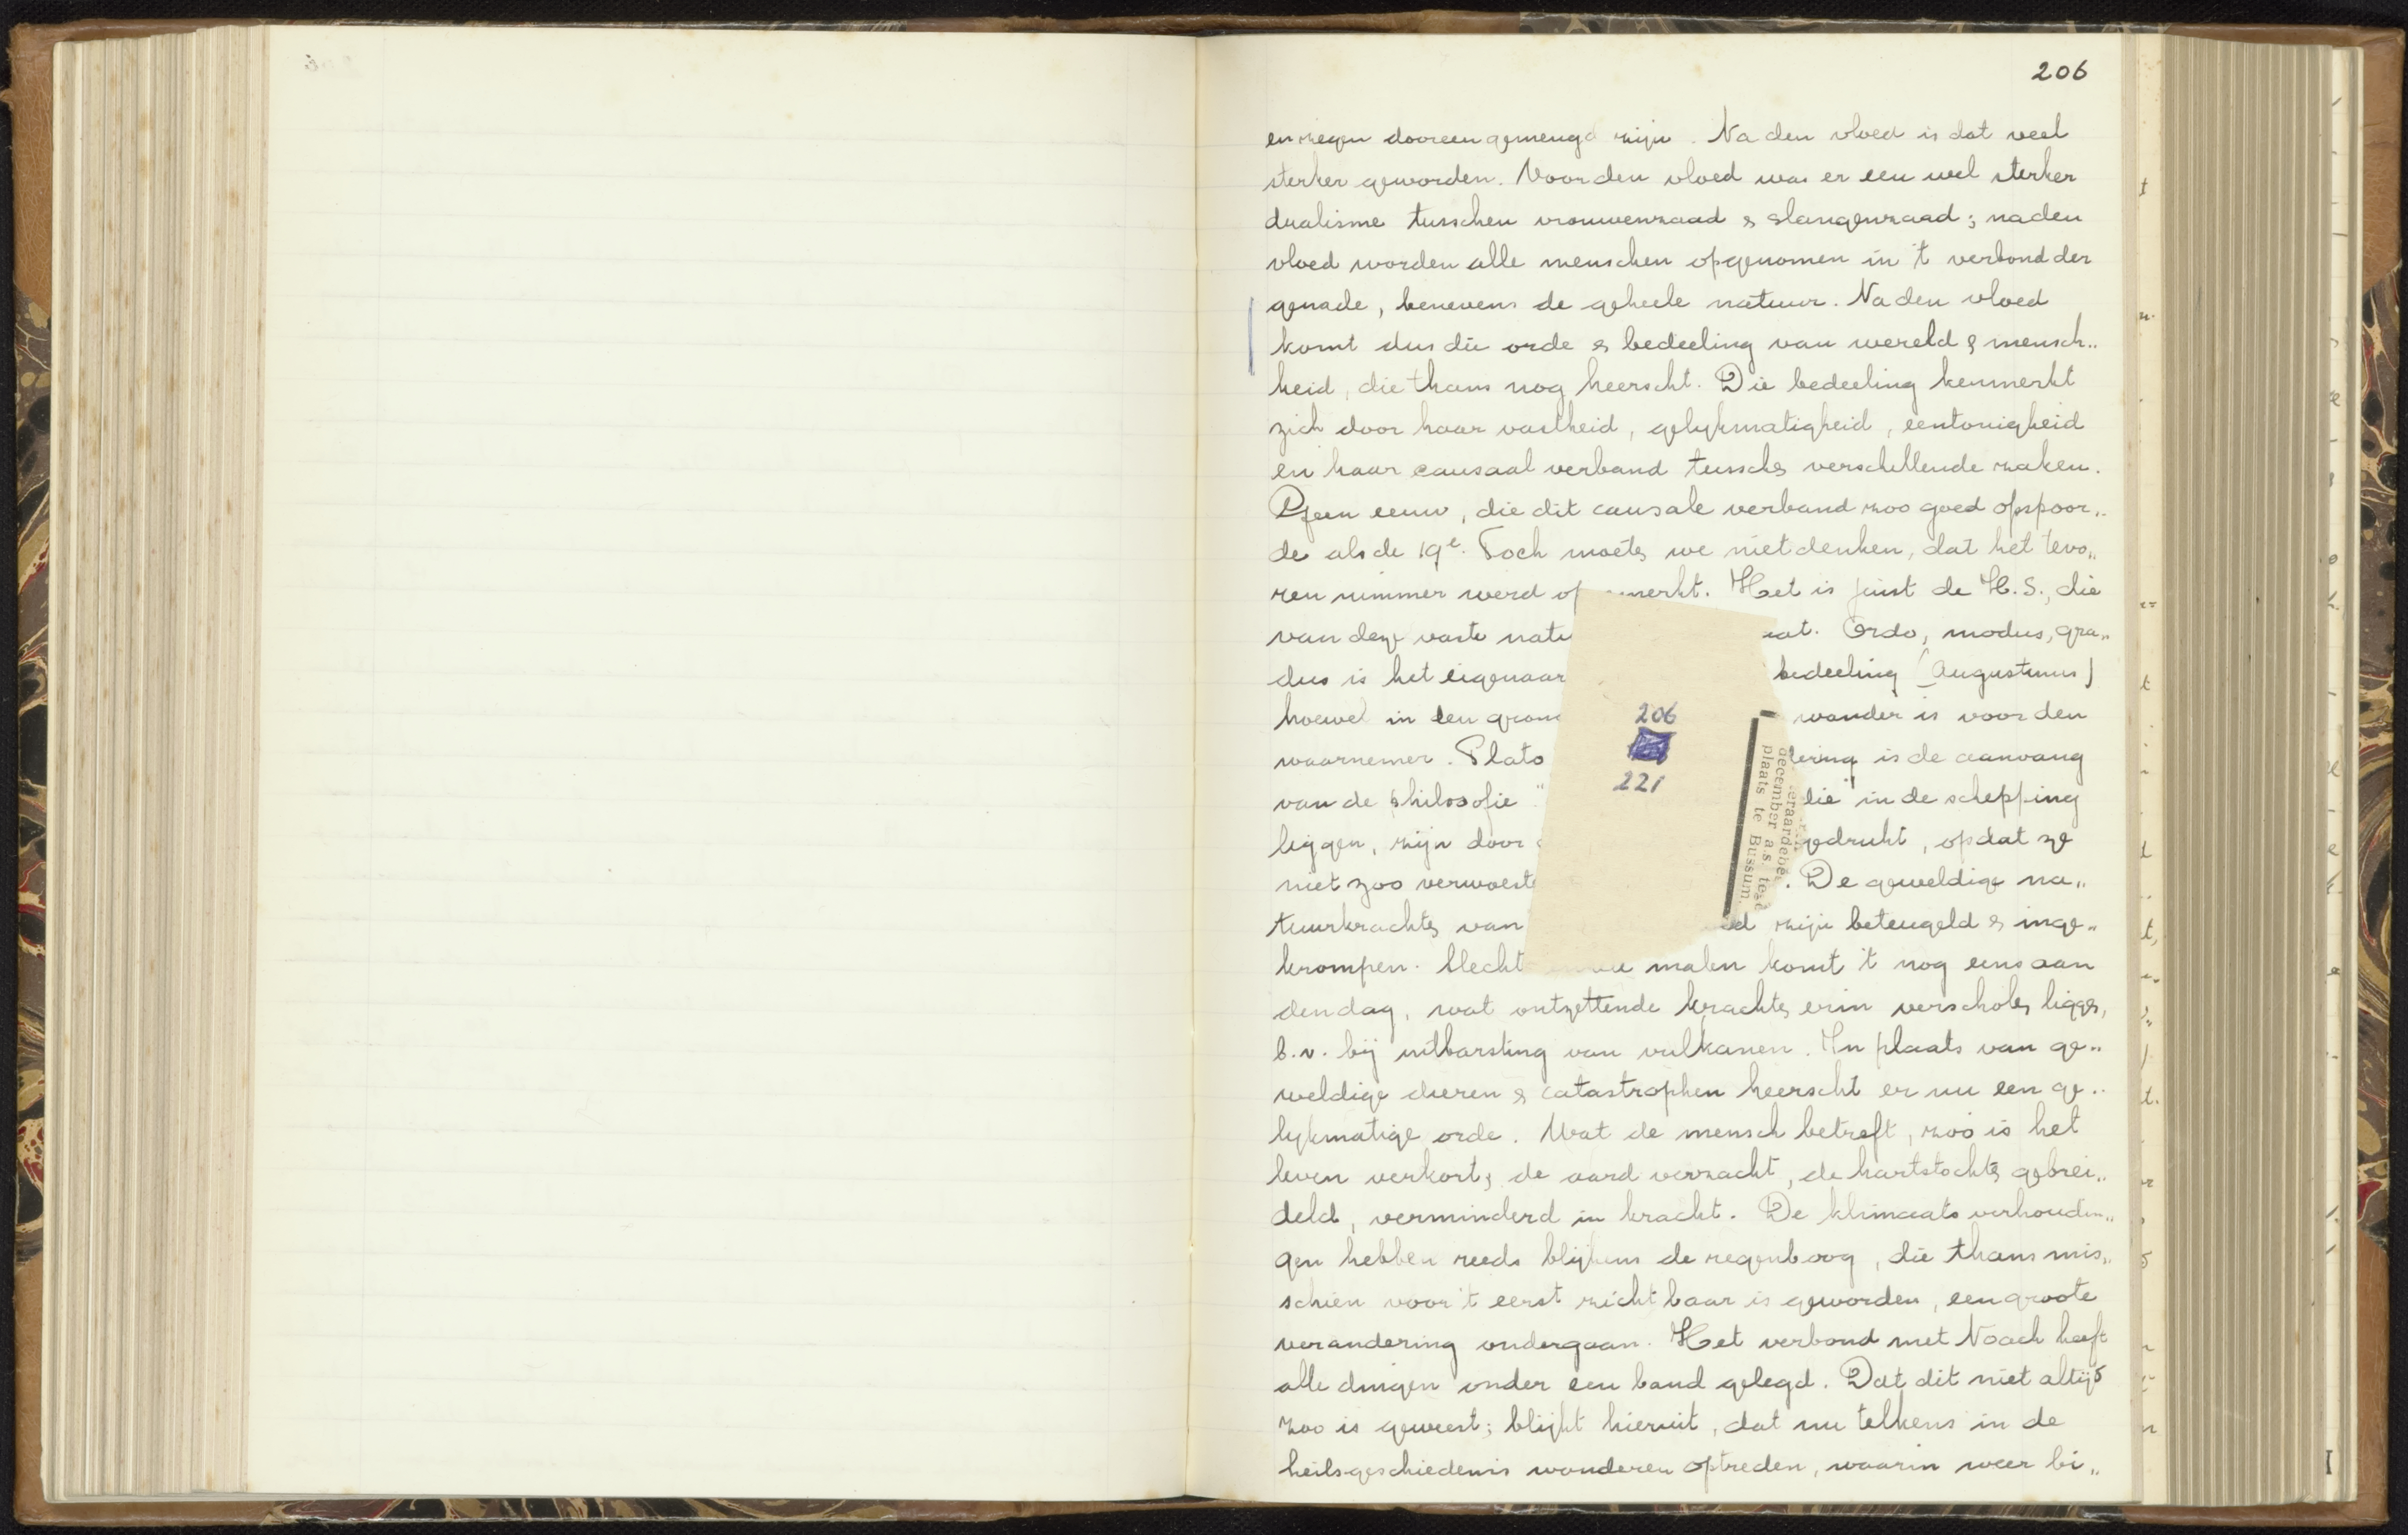 206
en zegen dooreengemengd zijn. Na den vloed is dat veel
sterker geworden. Voor den vloed was er een wel sterker
dualisme tusschen vrouwenzaad & slangenzaad; na den
vloed worden alle menschen opgenomen in 't verbond der
genade, benevens de geheele natuur. Na den vloed
komt dus die orde & bedeeling van wereld & mensch„
heid, die thans nog heerscht. Die bedeeling kenmerkt
zich door haar vastheid, gelykmatigheid, eentonigheid
en haar causaal verband tussche verschillende zaken.
Geen eeuw, die dit causale verband zoo goed opspoor„
de als de 19e. Toch moete we niet denken, dat het tevo„
ren nimmer werd op merkt. Het is juist de H.S., die
van deze vaste natu aat. Ordo, modus, gra„
dus is het eigenaar bedeeling (Augustinus)
hoewel in den gron wonder is voor den
waarnemer. Plato dering is de aanvang
van de philosofie " die in de schepping
liggen, zijn door gedrukt, opdat ze
niet zoo verwoeste . De geweldige na„
tuurkrachte van ed zijn beteugeld & inge„
krompen. Slecht malen komt 't nog eens aan
den dag, wat ontzettende krachte erin verschole ligge,
b.v. bij uitbarsting van vulkanen. In plaats van ge„
weldige dieren & catastrophen heerscht er nu een ge„
lykmatige orde. Wat de mensch betreft, zoo is het
leven verkort, de aard verzacht, de hartstochte gebrei„
deld, verminderd in kracht. De klimaatsverhoudin„
gen hebben reeds blijkens de regenboog, die thans mis„
schien voor 't eerst zichtbaar is geworden, een groote
verandering ondergaan. Het verbond met Noach heeft
alle dingen onder een band gelegd. Dat dit niet altijd
zoo is geweest; blijkt hieruit, dat nu telkens in de
heilsgeschiedenis wonderen optreden, waarin weer bi„
206
221
eraardebe
december a.s. te
plaats te Bussum.